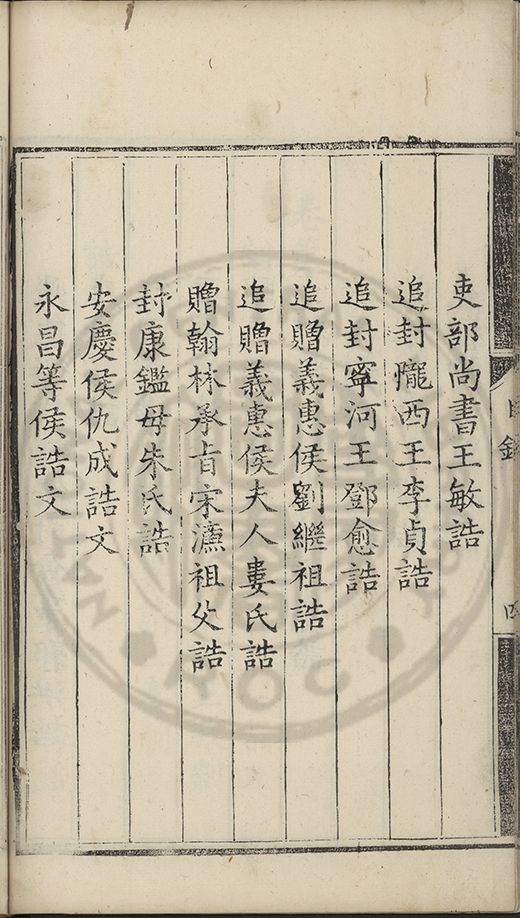 吏部尚書王敏誥
追封隴西王李貞誥
追封寧河王鄧愈誥
追贈義惠侯劉繼祖誥
追贈義惠侯夫人婁氏誥
贈翰林承旨宋濂祖父誥
封康鑑母朱氏誥
安慶侯仇成誥文
永昌等侯誥文